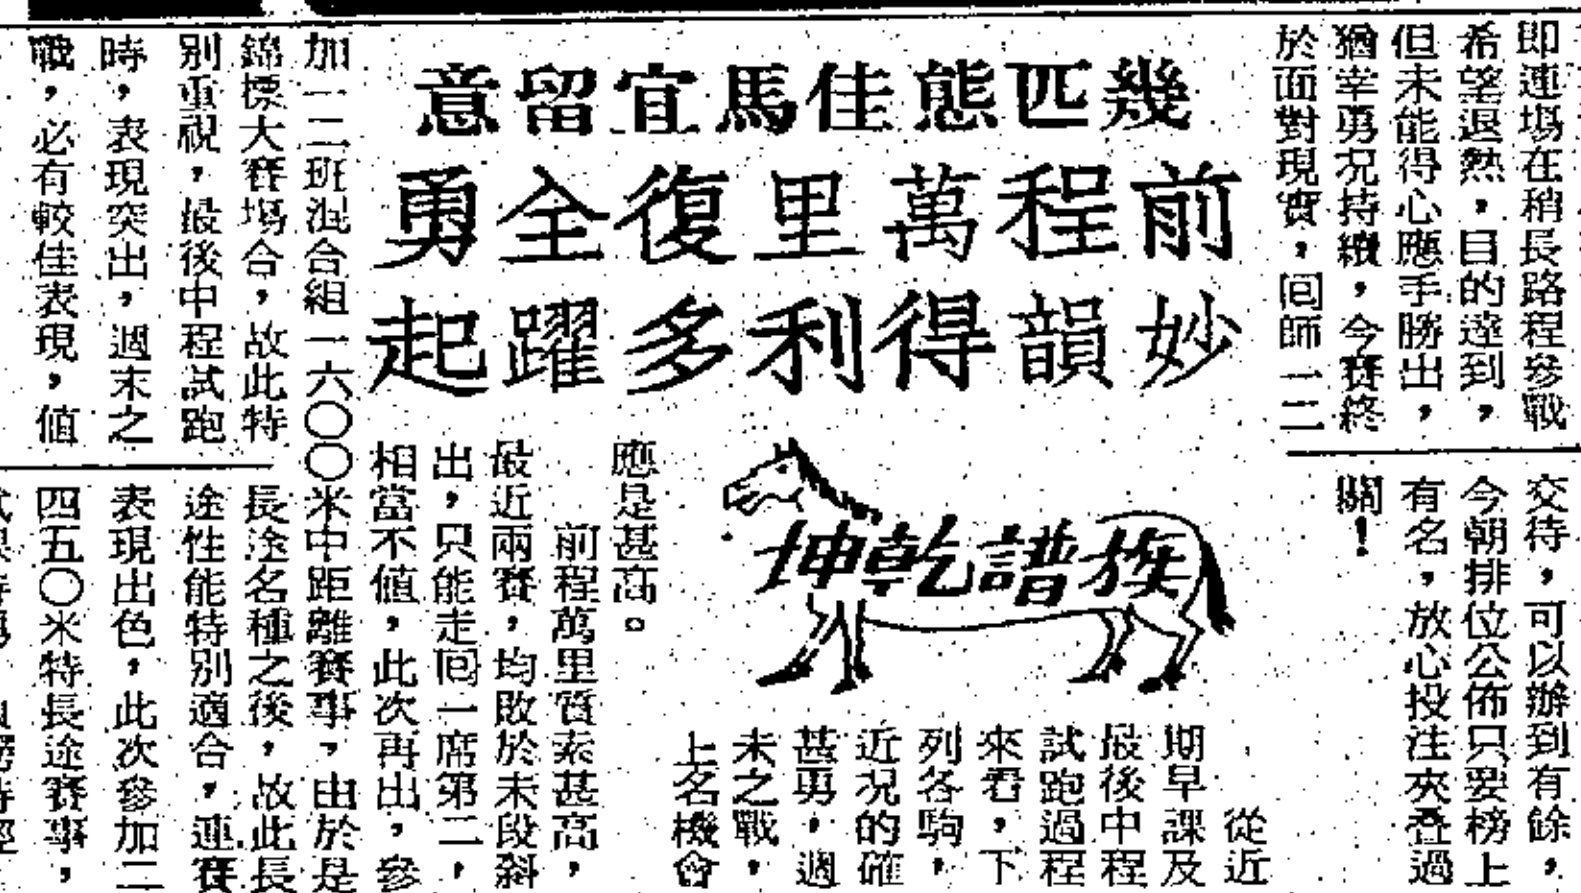 幾匹態佳馬宜留意
前程萬里復全勇
妙韻得利多躍起
族譜乾坤
即連塲在稍長路程參戰
希望退熱，目的達到，
但未能得心應手勝出，
猶幸勇况持續，今賽終
於面對現實，回師一二
交待，可以辦到有餘，
今朝排位公佈只要榜上
有名，放心投注夾叠過
關！
從近
期早課及
最後中程
試跑過程
來看，下
列各駒，
近况的確
甚勇，週
末之戰，
上名機會
應是甚高。
前程萬里質素甚高，
最近兩賽，均敗於末段斜
出，只能走回一席第二，
相當不值，此次再出，參
加一二班混合組一六〇〇米中距離賽事，由於是
錦標大賽塲合，故此特
別重視，最後中程試跑
時，表現突出，週末之
戰，必有較佳表現，值
長途名種之後，故此長
途性能特別適合，連賽
表現出色，此次參加二
四五〇米特長途賽事，